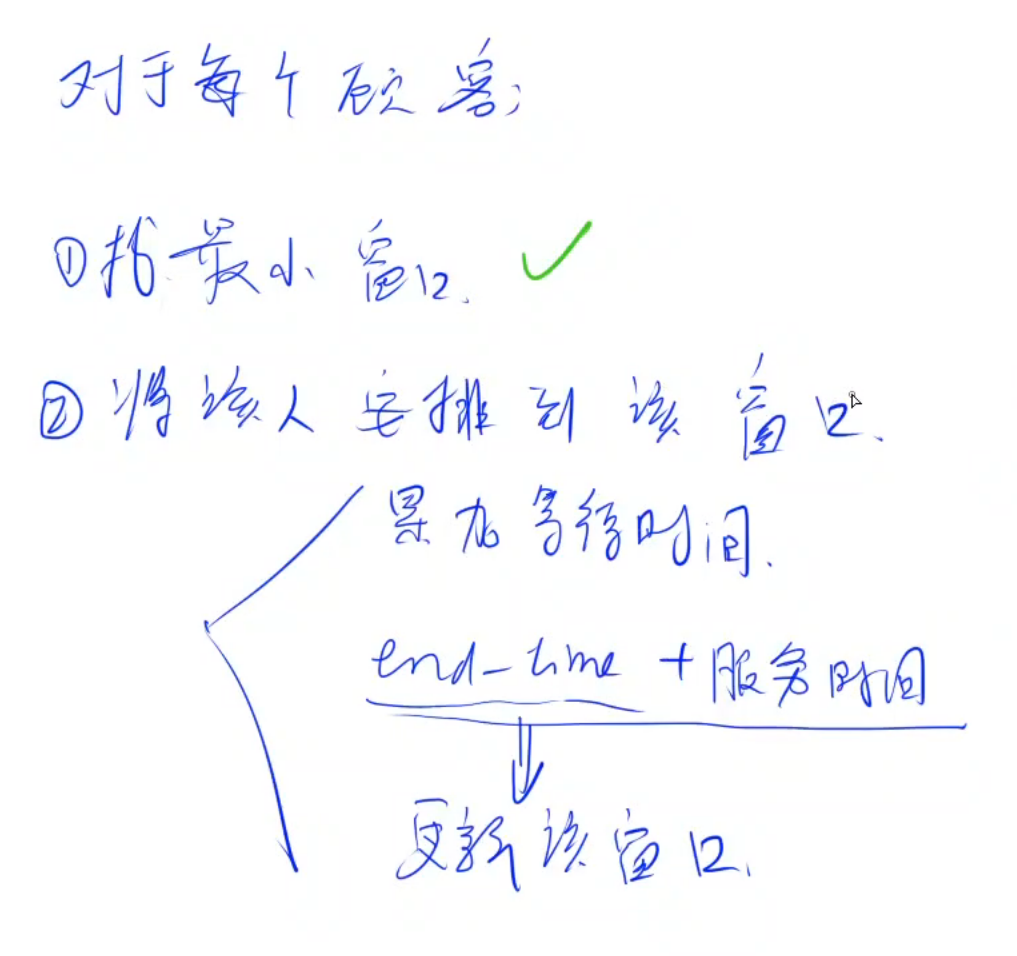 对于每个顾客;
①找最小窗口.
②将该人安排到该窗口.
累加等待时间.
end_time + 服务时间
更新该窗口.